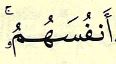 أَنفُسَهُمُۥۚ